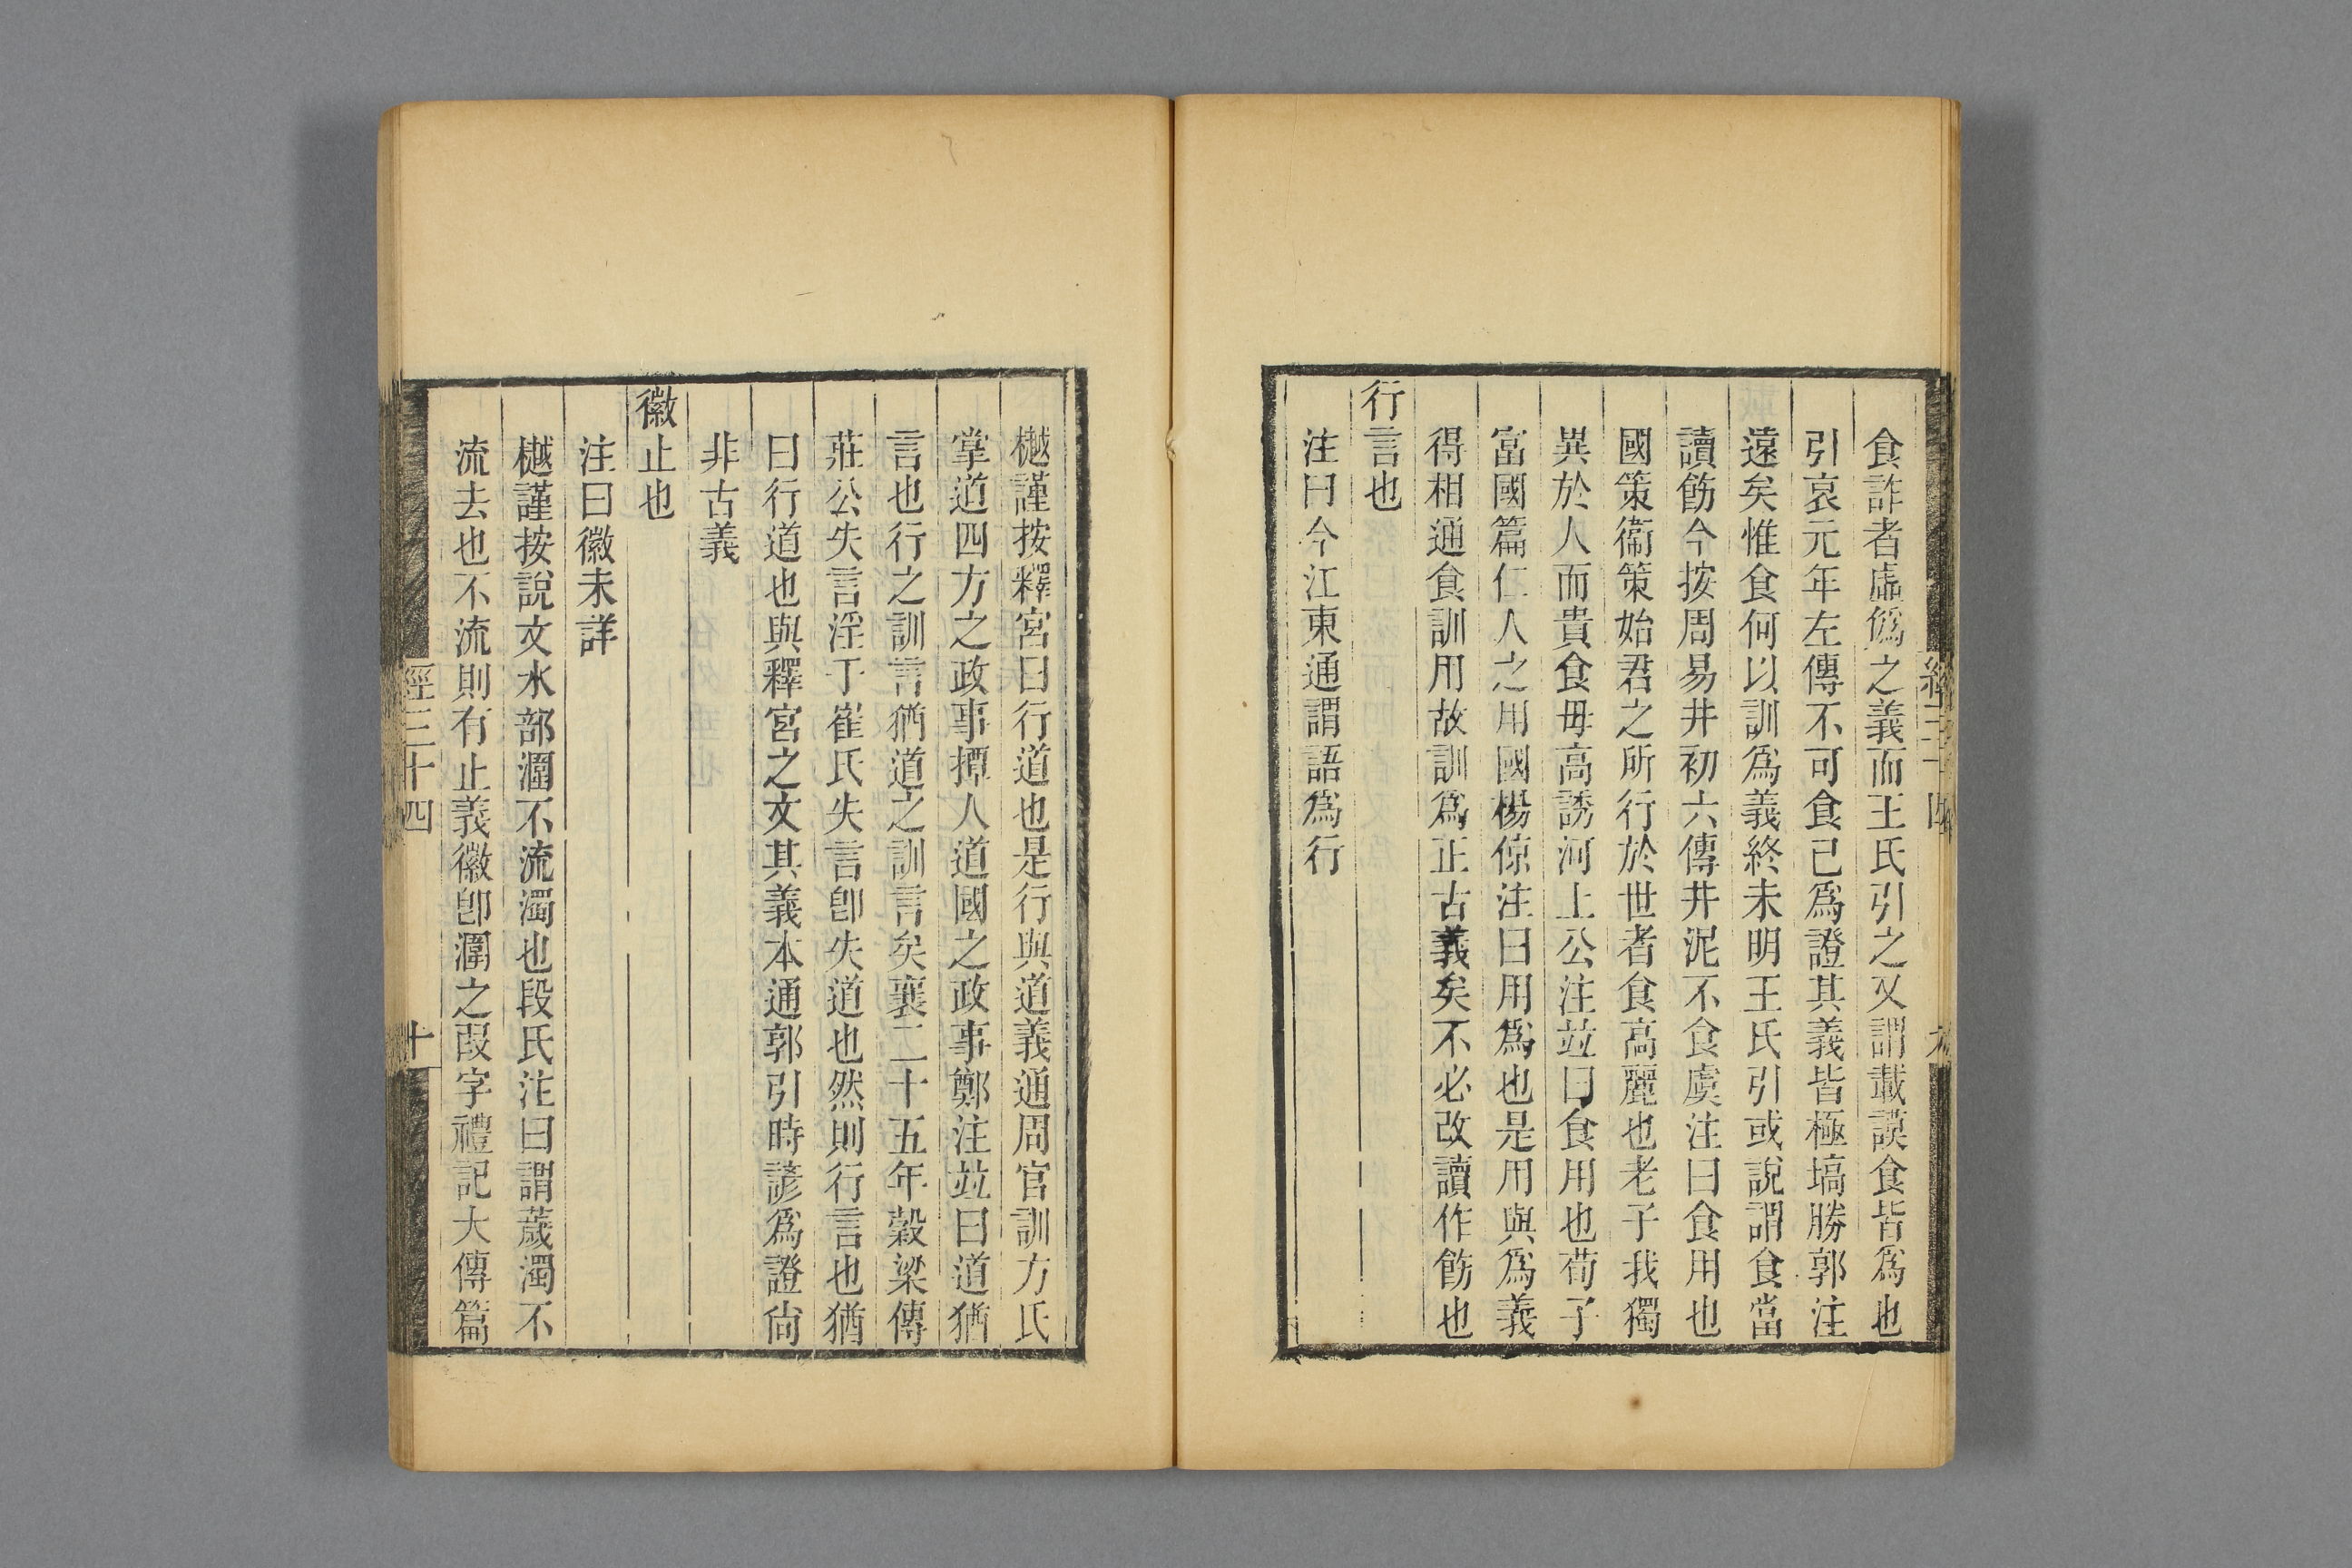 食詐者虛僞之義而王氏引之又謂載謨食皆爲也
引哀元年左傳不可食已爲證其義皆極塙勝郭注
遠矣惟食何以訓爲義終未明王氏引或說謂食當
讀飭今按周易井初六傳井泥不食虞注曰食用也
國策衞策始君之所行於世者食高麗也老子我獨
異於人而貴食毋高誘河上公注竝曰食用也荀子
富國篇仁人之用國楊倞注曰用爲也是用與爲義
得相通食訓用故訓爲正古義矣不必改讀作飭也
行言也
注曰今江東通謂語爲行
樾謹按釋宮曰行道也是行與道義通周官訓方氏
掌道四方之政事撢人道國之政事鄭注竝曰道猶
言也行之訓言猶道之訓言矣襄二十五年穀梁傳
莊公失言淫于崔氏失言卽失道也然則行言也猶
曰行道也與釋宮之文其義本通郭引時諺爲證尙
非古義
徽止也
注曰徽未詳
樾謹按說文水部潿不流濁也段氏注曰謂薉濁不
流去也不流則有止義徽卽潿之叚字禮記大傳篇
經三十四
十